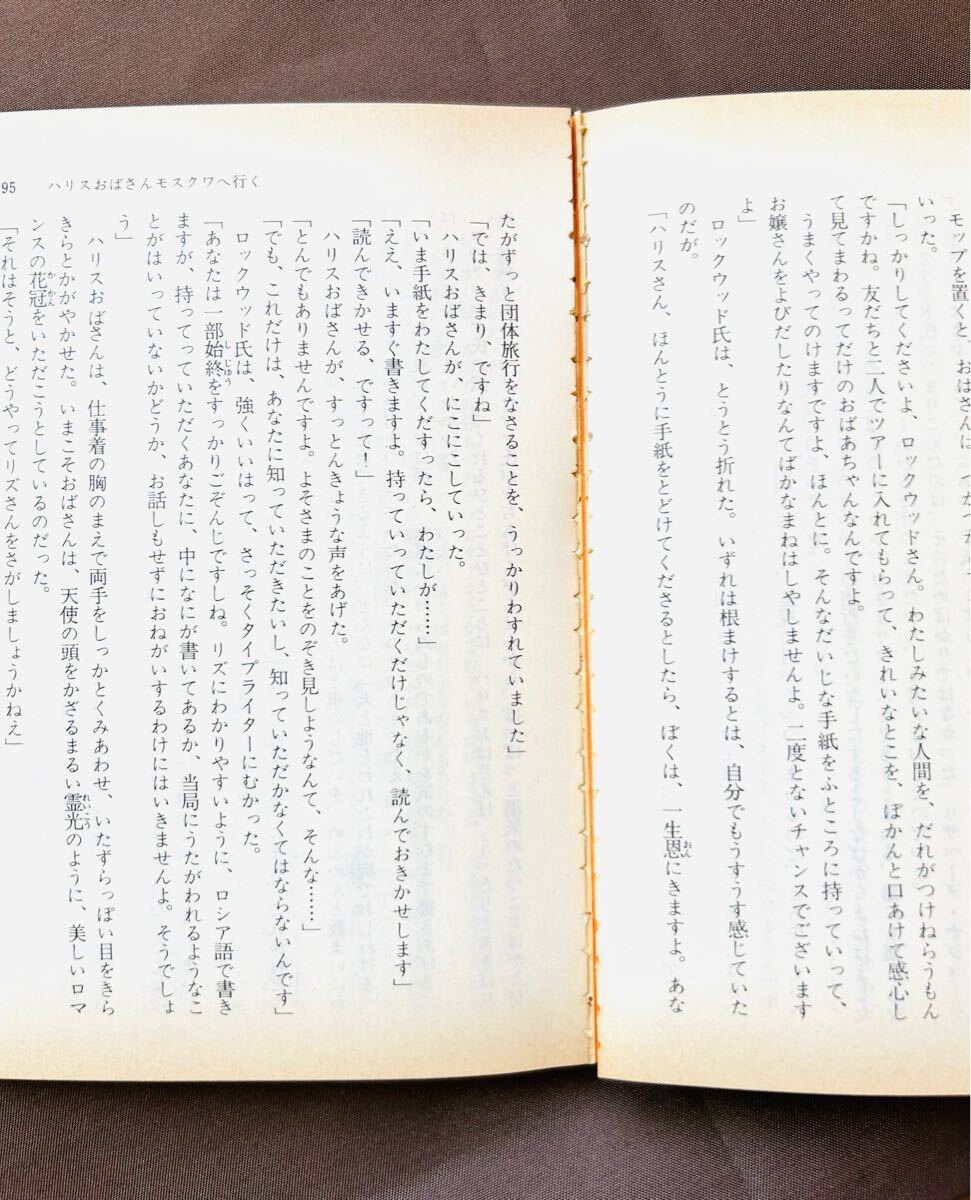 モップを置くと、おばさんは
いった。
「しっかりしてくださいよ、ロックウッドさん。わたしみたいな人間を、だれがつけねらうもん
ですかね。友だちと二人でツアーに入れてもらって、きれいなとこを、ぽかんと口あけて感心し
て見てまわるってだけのおばあちゃんなんですよ。
うまくやってのけますですよ、ほんとに。そんなだいじな手紙をふところに持っていって、
お嬢さんをよびだしたりなんてばかなまねはしやしませんよ。二度とないチャンスでございます
よ」
ロックウッド氏は、とうとう折れた。いずれは根まけするとは、自分でもうすうす感じていた
のだが。
「ハリスさん、ほんとうに手紙をとどけてくださるとしたら、ぼくは、一生恩にきますよ。あな
95 ハリスおばさんモスクワへ行く
たがずっと団体旅行をなさることを、うっかりわすれていました」
「では、きまりですね」
ハリスおばさんが、にこにこしていった。
「いま手紙をわたしてくだすったら、わたしが……」
「ええ、いますぐ書きますよ。持っていっていただくだけじゃなく、読んでおきかせします」
「読んできかせる、ですって！」
ハリスおばさんが、すっとんきょうな声をあげた。
「とんでもありませんですよ。よそさまのことをのぞき見しようなんて、そんな……」
「でも、これだけは、あなたに知っていただきたいし、知っていただかなくてはならないんです」
ロックウッド氏は、強くいいはって、さっそくタイプライターにむかった。
「あなたは一部始終をすっかりごぞんじですしね。リズにわかりやすいように、ロシア語で書き
ますが、持ってっていただくあなたに、中になにが書いてあるか、当局にうたがわれるようなこ
とがはいっていないかどうか、お話しもせずにおねがいするわけにはいきませんよ。そうでしょ
う」
ハリスおばさんは、仕事着の胸のまえで両手をしっかとくみあわせ、いたずらっぽい目をきら
きらとかがやかせた。いまこそおばさんは、天使の頭をかざるまるい霊光のように、美しいロマ
ンスの花冠をいただこうとしているのだった。
「それはそうと、どうやってリズさんをさがしましょうかねえ」